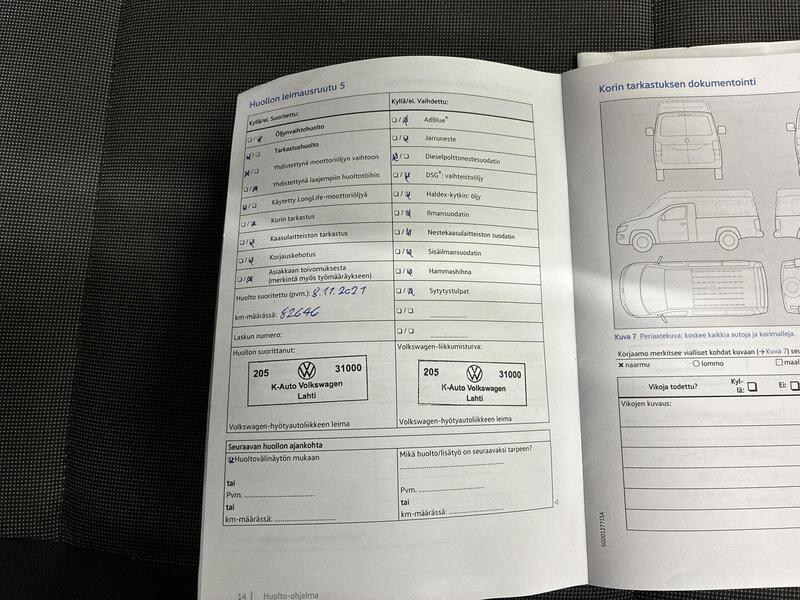 Huollon leimausruutu 5
Kyllä/ei. Suoritettu:
☐/☒ Öljynvaihtohuolto
☒/☐ Tarkastushuolto
☒/☐ Yhdistettynä moottoriöljyn vaihtoon
☐/☒ Yhdistettynä laajempiin huoltotöihin
☒/☐ Käytetty LongLife-moottoriöljyä
☐/☒ Korin tarkastus
☐/☒ Kaasulaitteiston tarkastus
☐/☒ Korjauskehotus
☐/☒ Asiakkaan toivomuksesta
(merkintä myös työmääräykseen)
Huolto suoritettu (pvm.): 8.11.2021
km-määrässä: 82646
Laskun numero:
Huollon suorittanut:
205 31000
K-Auto Volkswagen
Lahti
Volkswagen-hyötyautoliikkeen leima
Kyllä/ei. Vaihdettu:
☐/☒ AdBlue®
☐/☒ Jarruneste
☒/☐ Dieselpolttonestesuodatin
☐/☒ DSG®: vaihteistoöljy
☐/☒ Haldex-kytkin: öljy
☐/☒ Ilmansuodatin
☐/☒ Nestekaasulaitteiston suodatin
☐/☒ Sisäilmansuodatin
☐/☒ Hammashihna
☐/☒ Sytytystulpat
☐/☐ ....................
☐/☐ ....................
Volkswagen-liikkumisturva:
205 31000
K-Auto Volkswagen
Lahti
Volkswagen-hyötyautoliikkeen leima
Seuraavan huollon ajankohta
☒ Huoltovälinäytön mukaan
tai
Pvm. ....................
tai
km-määrässä: ....................
Mikä huolto/lisätyö on seuraavaksi tarpeen?
....................
Pvm. ....................
tai
km-määrässä: ....................
14 | Huolto-ohjelma
Korin tarkastuksen dokumentointi
Kuva 7 Periaatekuva: koskee kaikkia autoja ja korimalleja.
Korjaamo merkitsee vialliset kohdat kuvaan (→ Kuva 7) seu
✖ naarmu ○ lommo ☐ maal
Vikoja todettu? Kyl-
lä: ☐ Ei: ☐
Vikojen kuvaus:
5G0012771SA